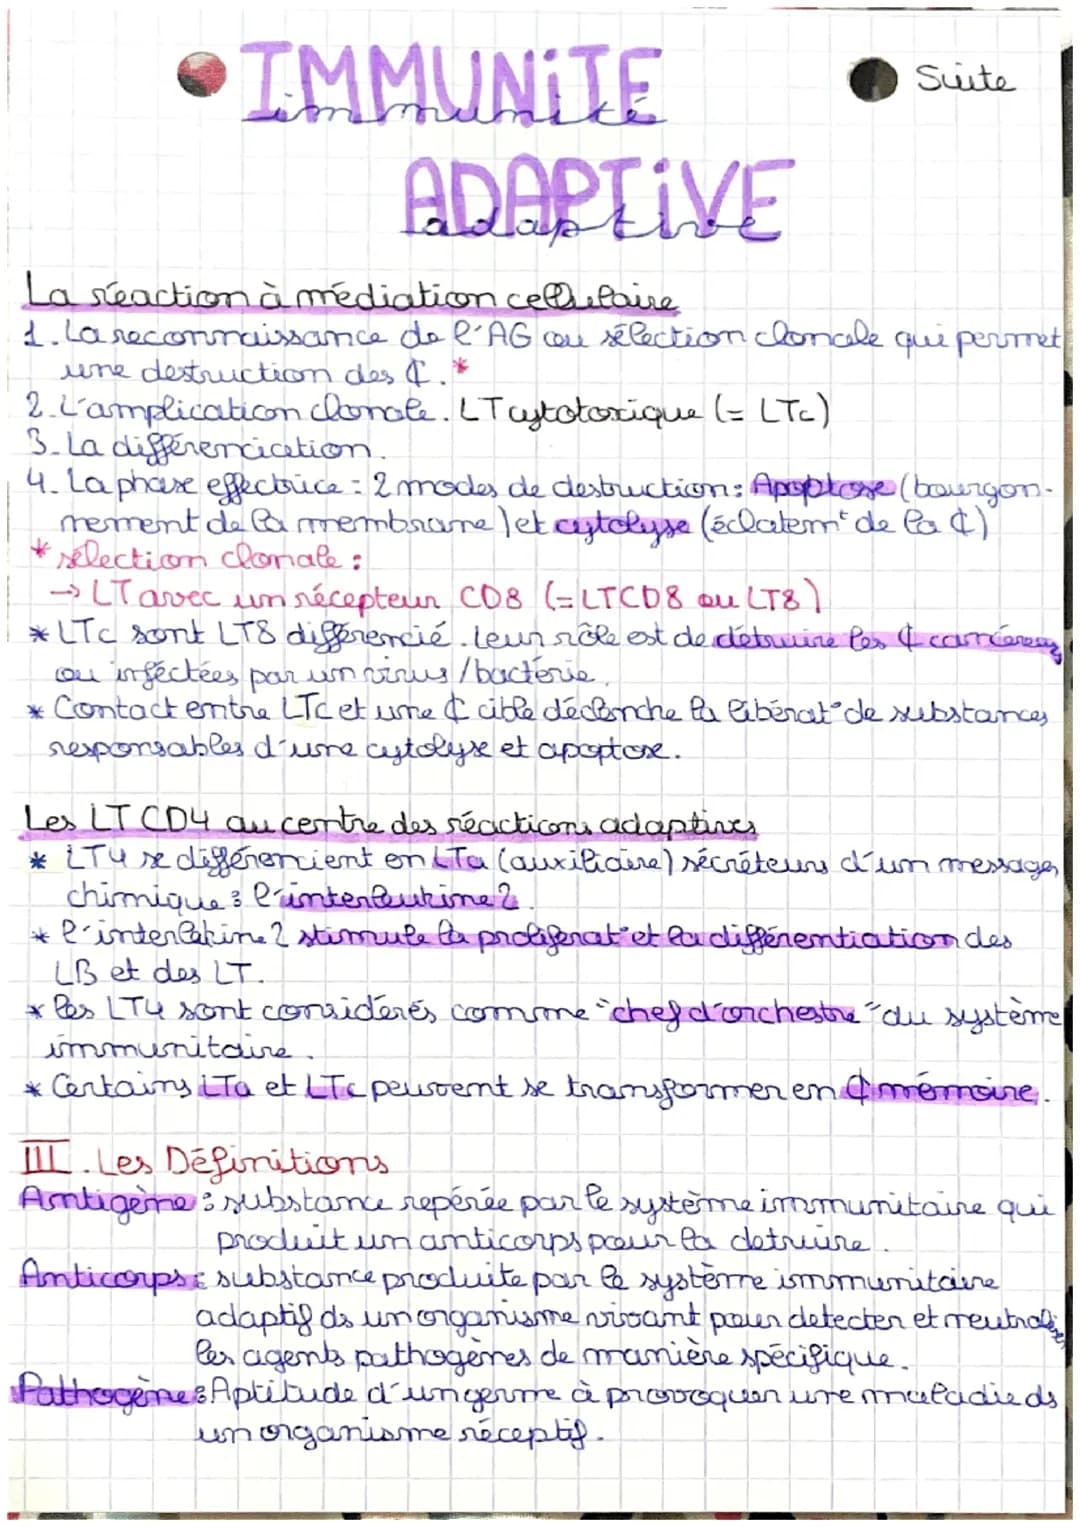 IMMUNiTE
immunité
Suite
ADAPTiVE
adaptive
La réaction à médiation cellulaire
1. La reconnaissance de l'AG ou sélection clonale qui permet
une destruction des ₵. *
2. L'amplication clonale. LT cytotoxique (= LTc)
3. La différenciation.
4. La phase effectrice = 2 modes de destruction : Apoptose (bourgon-
nement de la membrane) et cytolyse (éclatemt de la ₵)
* sélection clonale :
→ LT avec un récepteur CD8 (=LTCD8 ou LT8)
* LTc sont LT8 différencié. Leur rôle est de détruire les ₵ cancéreuz
ou inféctées par un virus /bactérie.
* Contact entre LTc et une ₵ cible déclenche la libérat° de substances
responsables d'une cytolyse et apoptose.
Les LT CD4 au centre des réactions adaptives
* LT4 se différencient en LTa (auxiliaire) sécréteurs d'un message
chimique : l'interleukine 2.
* l'interlekine 2 stimule la proliferat° et la différentiation des
LB et des LT.
* les LT4 sont considérés comme "chef d'orchestre" du système
immunitaire.
* Certains LTa et LTc peuvent se transformer en ₵ mémoire.
III. Les Définitions
Antigène : substance repérée par le système immunitaire qui
produit un anticorps pour la detruire.
Anticorps : substance produite par le système immunitaire
adaptif ds un organisme vivant pour detecter et neutraliser
les agents pathogènes de manière spécifique.
Pathogène : Aptitude d'un germe à provoquer une maladie ds
un organisme réceptif.